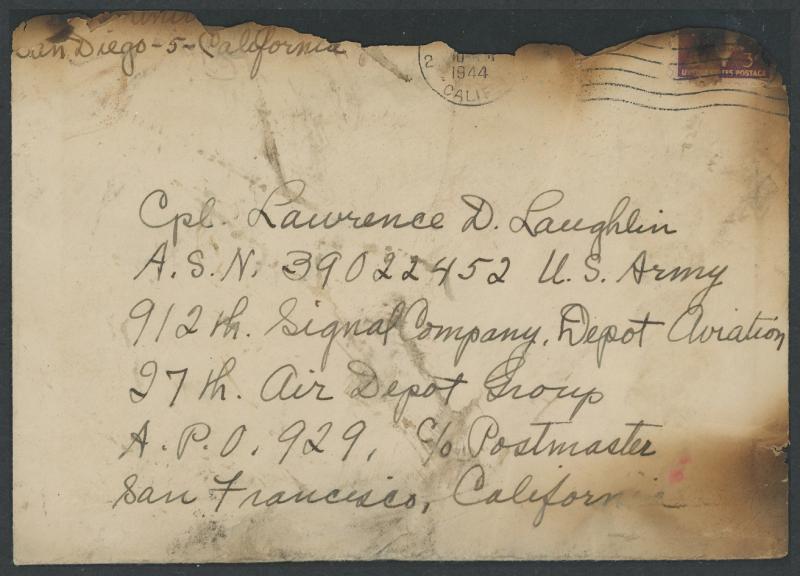 San Diego-5-California
2
1944
CALIF
3
UNITED STATES POSTAGE
Cpl. Lawrence D. Laughlin
A.S.N. 39022452 U.S. Army
912th. Signal Company, Depot Aviation
27th. Air Depot Group
A.P.O. 929, c/o Postmaster
San Francisco, California